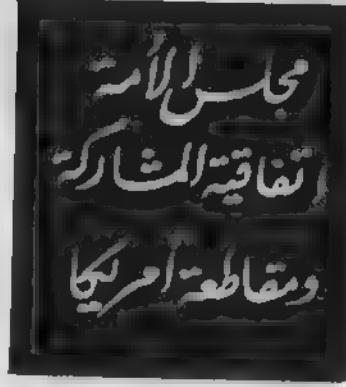 مجلس الأمة
اتفاقية المشاركة
ومقاطعة أمريكا